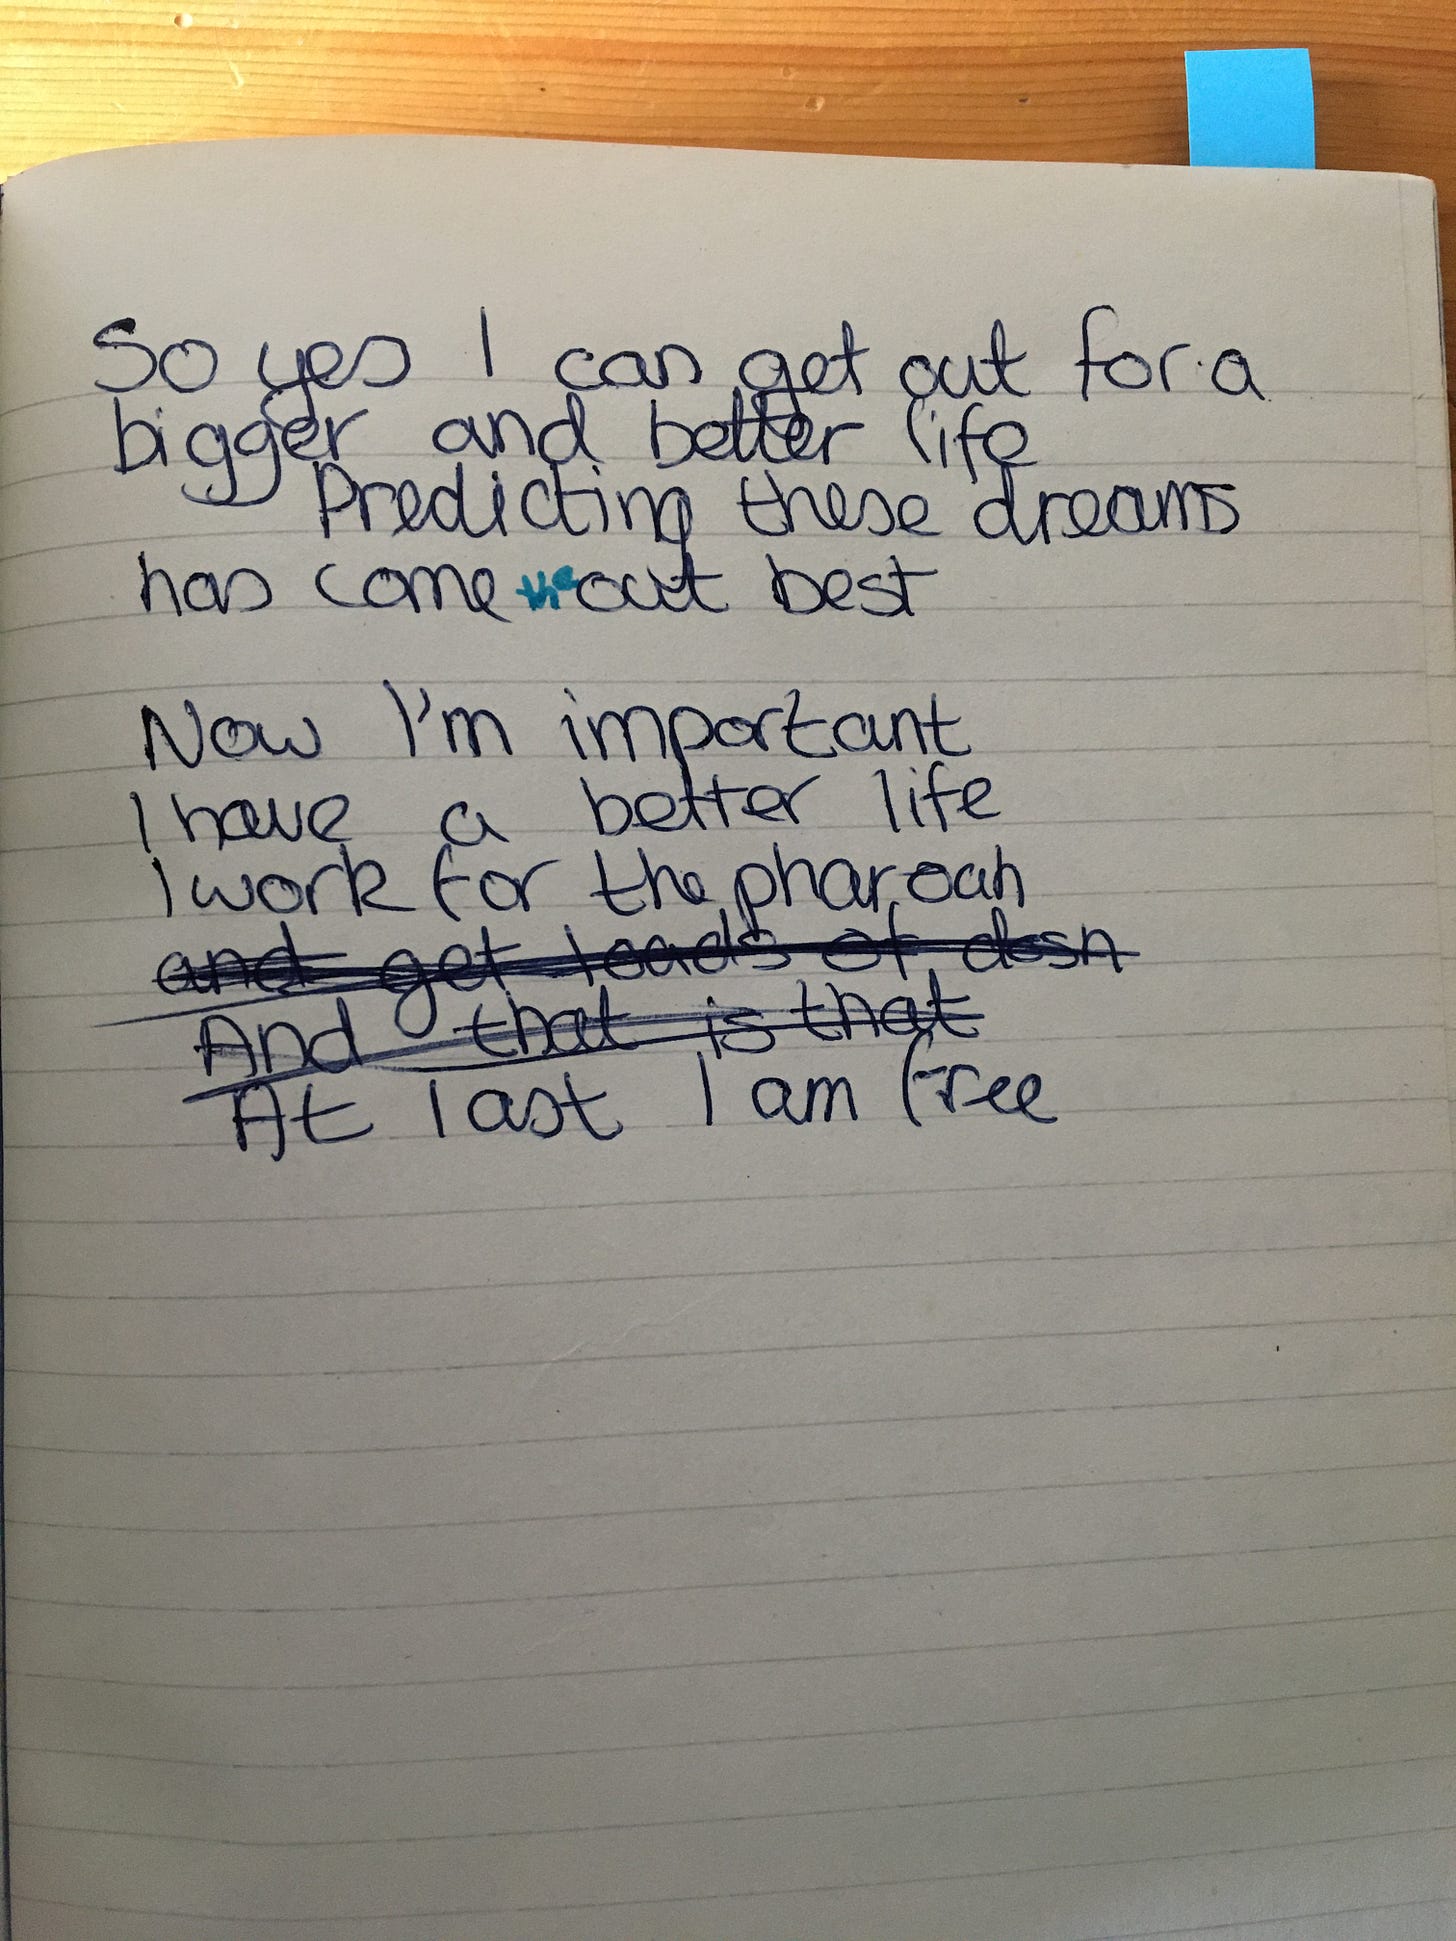 So yes I can get out for a
bigger and better life
Predicting these dreams
has come the out best
Now I'm important
I have a better life
I work for the pharoah
and get loads of dosh
And that is that
At last I am free